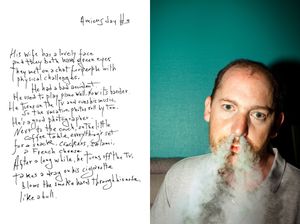 His wife has a lovely face
and they both have green eyes
They met on a chat for people with
physical challenges.
He had a bad accident
He used to play piano well. Now its harder.
He turns on the TV and puts music,
So the vacation photos roll by too.
He's a good photographer.
Next to the couch, on the little
coffee table, everything's set
for a smoke, crackers, salami,
a French cheese.
After a long while, he turns off the TV,
takes a drag on his cigarette
Blows the smoke hard through his nose,
like a bull.